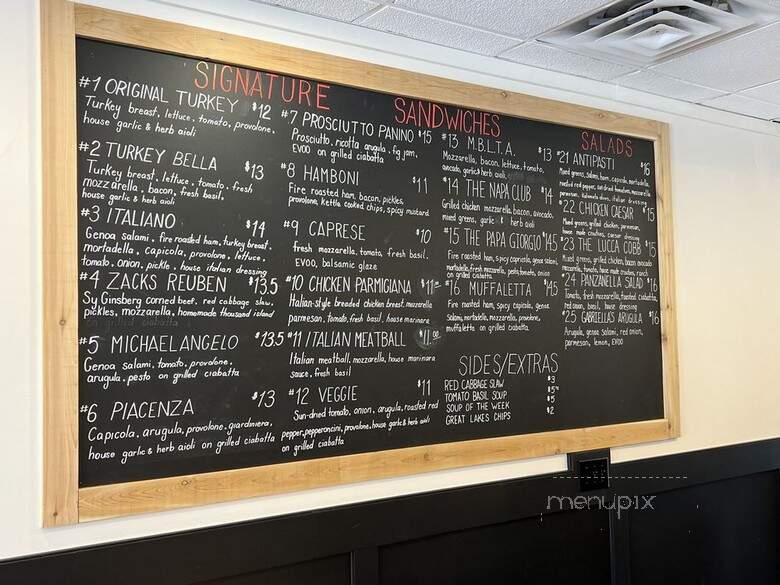 SIGNATURE SANDWICHES
#1 ORIGINAL TURKEY $12
Turkey breast, lettuce, tomato, provolone,
house garlic & herb aioli
#2 TURKEY BELLA $13
Turkey breast, lettuce, tomato, fresh
mozzarella, bacon, fresh basil,
house garlic & herb aioli
#3 ITALIANO $14
Genoa salami, fire roasted ham, turkey breast,
mortadella, capicola, provolone, lettuce,
tomato, onion, pickle, house italian dressing
#4 ZACKS REUBEN $13.5
Sy Ginsberg corned beef, red cabbage slaw,
pickles, mozzarella, homemade thousand island
on grilled ciabatta
#5 MICHAELANGELO $13.5
Genoa salami, tomato, provolone,
arugula, pesto on grilled ciabatta
#6 PIACENZA $13
Capicola, arugula, provolone, giardiniera,
house garlic & herb aioli on grilled ciabatta
#7 PROSCIUTTO PANINO $15
Prosciutto, ricotta, arugula, fig jam,
EVOO on grilled ciabatta
#8 HAMBONI $11
Fire roasted ham, bacon, pickles,
provolone, kettle cooked chips, spicy mustard
#9 CAPRESE $10
fresh mozzarella, tomato, fresh basil,
EVOO, balsamic glaze
#10 CHICKEN PARMIGIANA $11
Italian-style breaded chicken breast, mozzarella
parmesan, tomato, fresh basil, house marinara
#11 ITALIAN MEATBALL $11.00
Italian meatball, mozzarella, house marinara
sauce, fresh basil
#12 VEGGIE $11
Sun-dried tomato, onion, arugula, roasted red
pepper, pepperoncini, provolone, house garlic & herb aioli
on grilled ciabatta
#13 M.B.L.T.A. $13
Mozzarella, bacon, lettuce, tomato,
avocado, garlic & herb aioli
#14 THE NAPA CLUB $14
Grilled chicken, mozzarella, bacon, avocado,
mixed greens, garlic & herb aioli
#15 THE PAPA GIORGIO $14.5
Fire roasted ham, spicy capicola, genoa salami,
mortadella, fresh mozzarella, pesto, tomato, onion
on grilled ciabatta
#16 MUFFALETTA $14.5
Fire roasted ham, spicy capicola, genoa
salami, mortadella, mozzarella, provolone,
muffaletta on grilled ciabatta
SIDES/EXTRAS
RED CABBAGE SLAW $3
TOMATO BASIL SOUP $5
SOUP OF THE WEEK $5
GREAT LAKES CHIPS $2
SALADS
#21 ANTIPASTI $16
Mixed greens, salami, ham, capicola, mortadella,
roasted red pepper, sun dried tomatoes, mozzarella,
parmesan, italian dressing
#22 CHICKEN CAESAR $15
Mixed greens, grilled chicken, parmesan,
house made croutons, caesar dressing
#23 THE LUCCA COBB $15
Mixed greens, grilled chicken, bacon, avocado
mozzarella, tomato, house made croutons, ranch
#24 PANZANELLA SALAD $16
Tomato, fresh mozzarella, toasted ciabatta,
red onion, basil, house dressing
#25 GABRIELLA'S ARUGULA $16
Arugula, genoa salami, red onion,
parmesan, lemon, EVOO
menupix